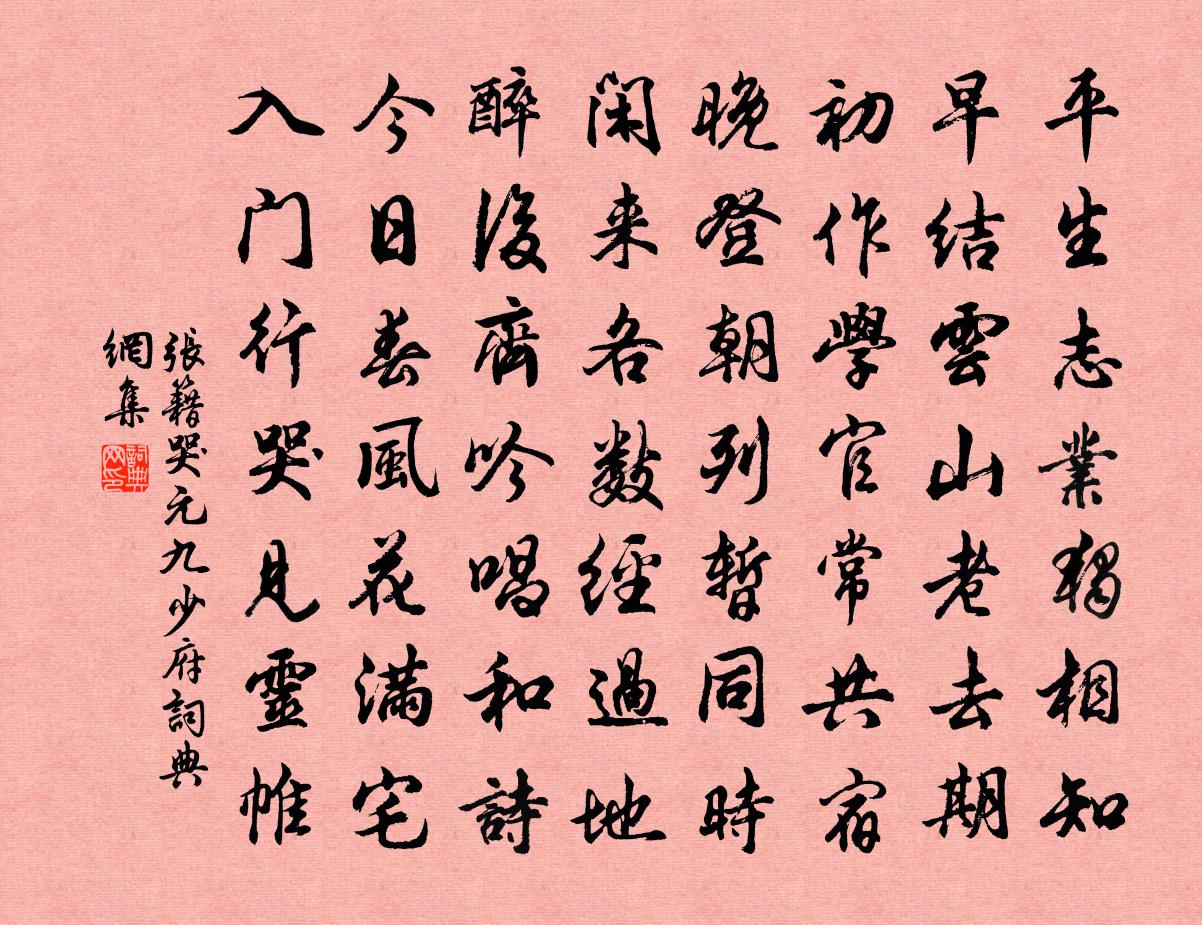 平生志業獨相知
早結雲山老去期
初作學官常共宿
晚登朝列暫同時
閑来各數經過地
醉後齊吟唱和詩
今日春風花滿宅
入门行哭見靈帷
張籍哭元九少府詞典
網集
詞典網印